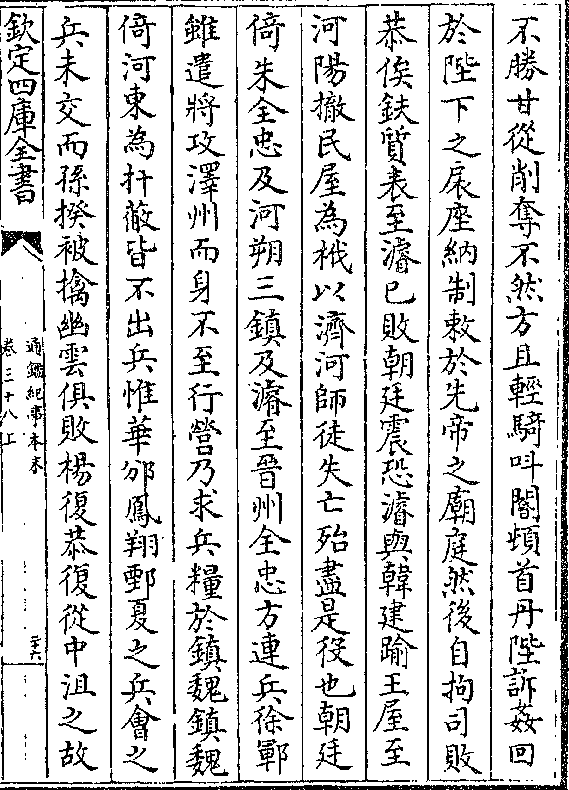 不勝甘從削奪不然方且輕騎叫閽頓首丹陛訴姦回
於陛下之扆座納制敕於先帝之廟庭然後自拘司敗
恭俟鈇質表至濬已敗朝廷震恐濬與韓建踰王屋至
河陽撤民屋為栰以濟河師徒失亡殆盡是役也朝廷
倚朱全忠及河朔三鎮及濬至晉州全忠方連兵徐鄆
雖遣將攻澤州而身不至行營乃求兵糧於鎮魏鎮魏
倚河東為扞蔽皆不出兵惟華邠鳳翔鄜夏之兵會之
兵未交而孫揆被擒幽雲俱敗楊復恭復從中沮之故
欽定四庫全書
通鑑紀事本末
卷三十八上